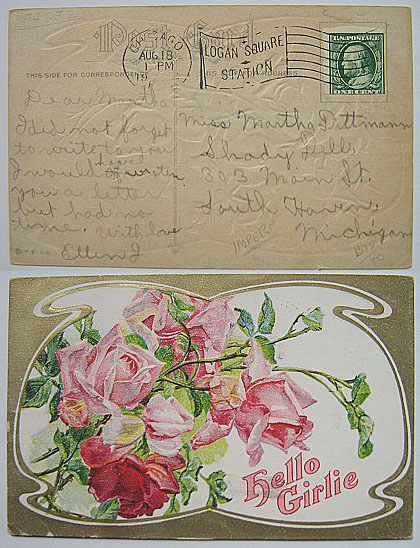 Post Card
CHICAGO
AUG 18
PM
19
LOGAN SQUARE
STATION
U.S. POSTAGE
ONE CENT
THIS SIDE FOR CORRESPONDENCE
ADDRESS
Dear Martha
I did not forget
to write to you
I would of written
you a letter
but had no
time. With love
Ellen J
Miss Martha Dittmann
Shady Dell.
303 Main St.
South Haven,
Michigan
IMPERF
Hello
Girlie